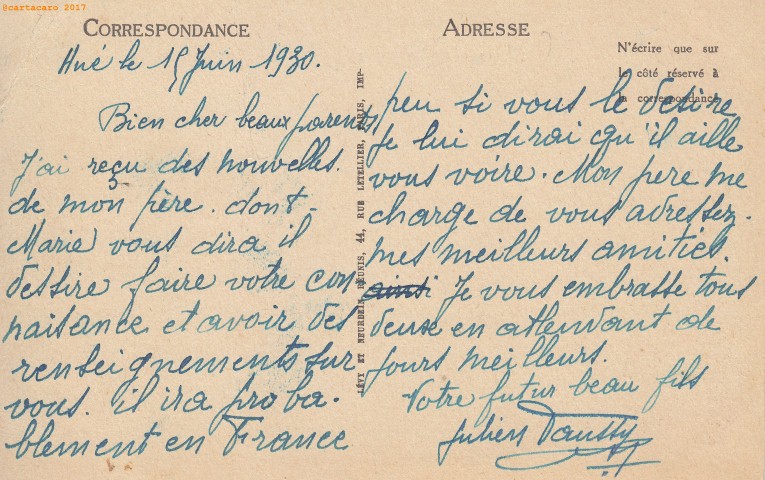 ©cartacaro 2017
CORRESPONDANCE
ADRESSE
N'écrire que sur
le côté réservé à
la correspondance
Hué le 15 Juin 1930.
Bien cher beaux parents,
J'ai reçu des nouvelles.
de mon père. dont-
Marie vous dira il
dessire faire votre con
naisance et avoir des
renseignements sur
vous. il ira proba.
blement en France
LÉVY ET NEURDEIN RÉUNIS, 44, RUE LETELLIER, PARIS, IMP.
peu si vous le desire
Je lui dirai qu'il aille
vous voire. Mon pere me
charge de vous adressez.
mes meilleurs amitiés.
ainsi Je vous embrasse tous
deuse en attendant de
jours meilleurs.
Votre futur beau fils
Julien Daussy